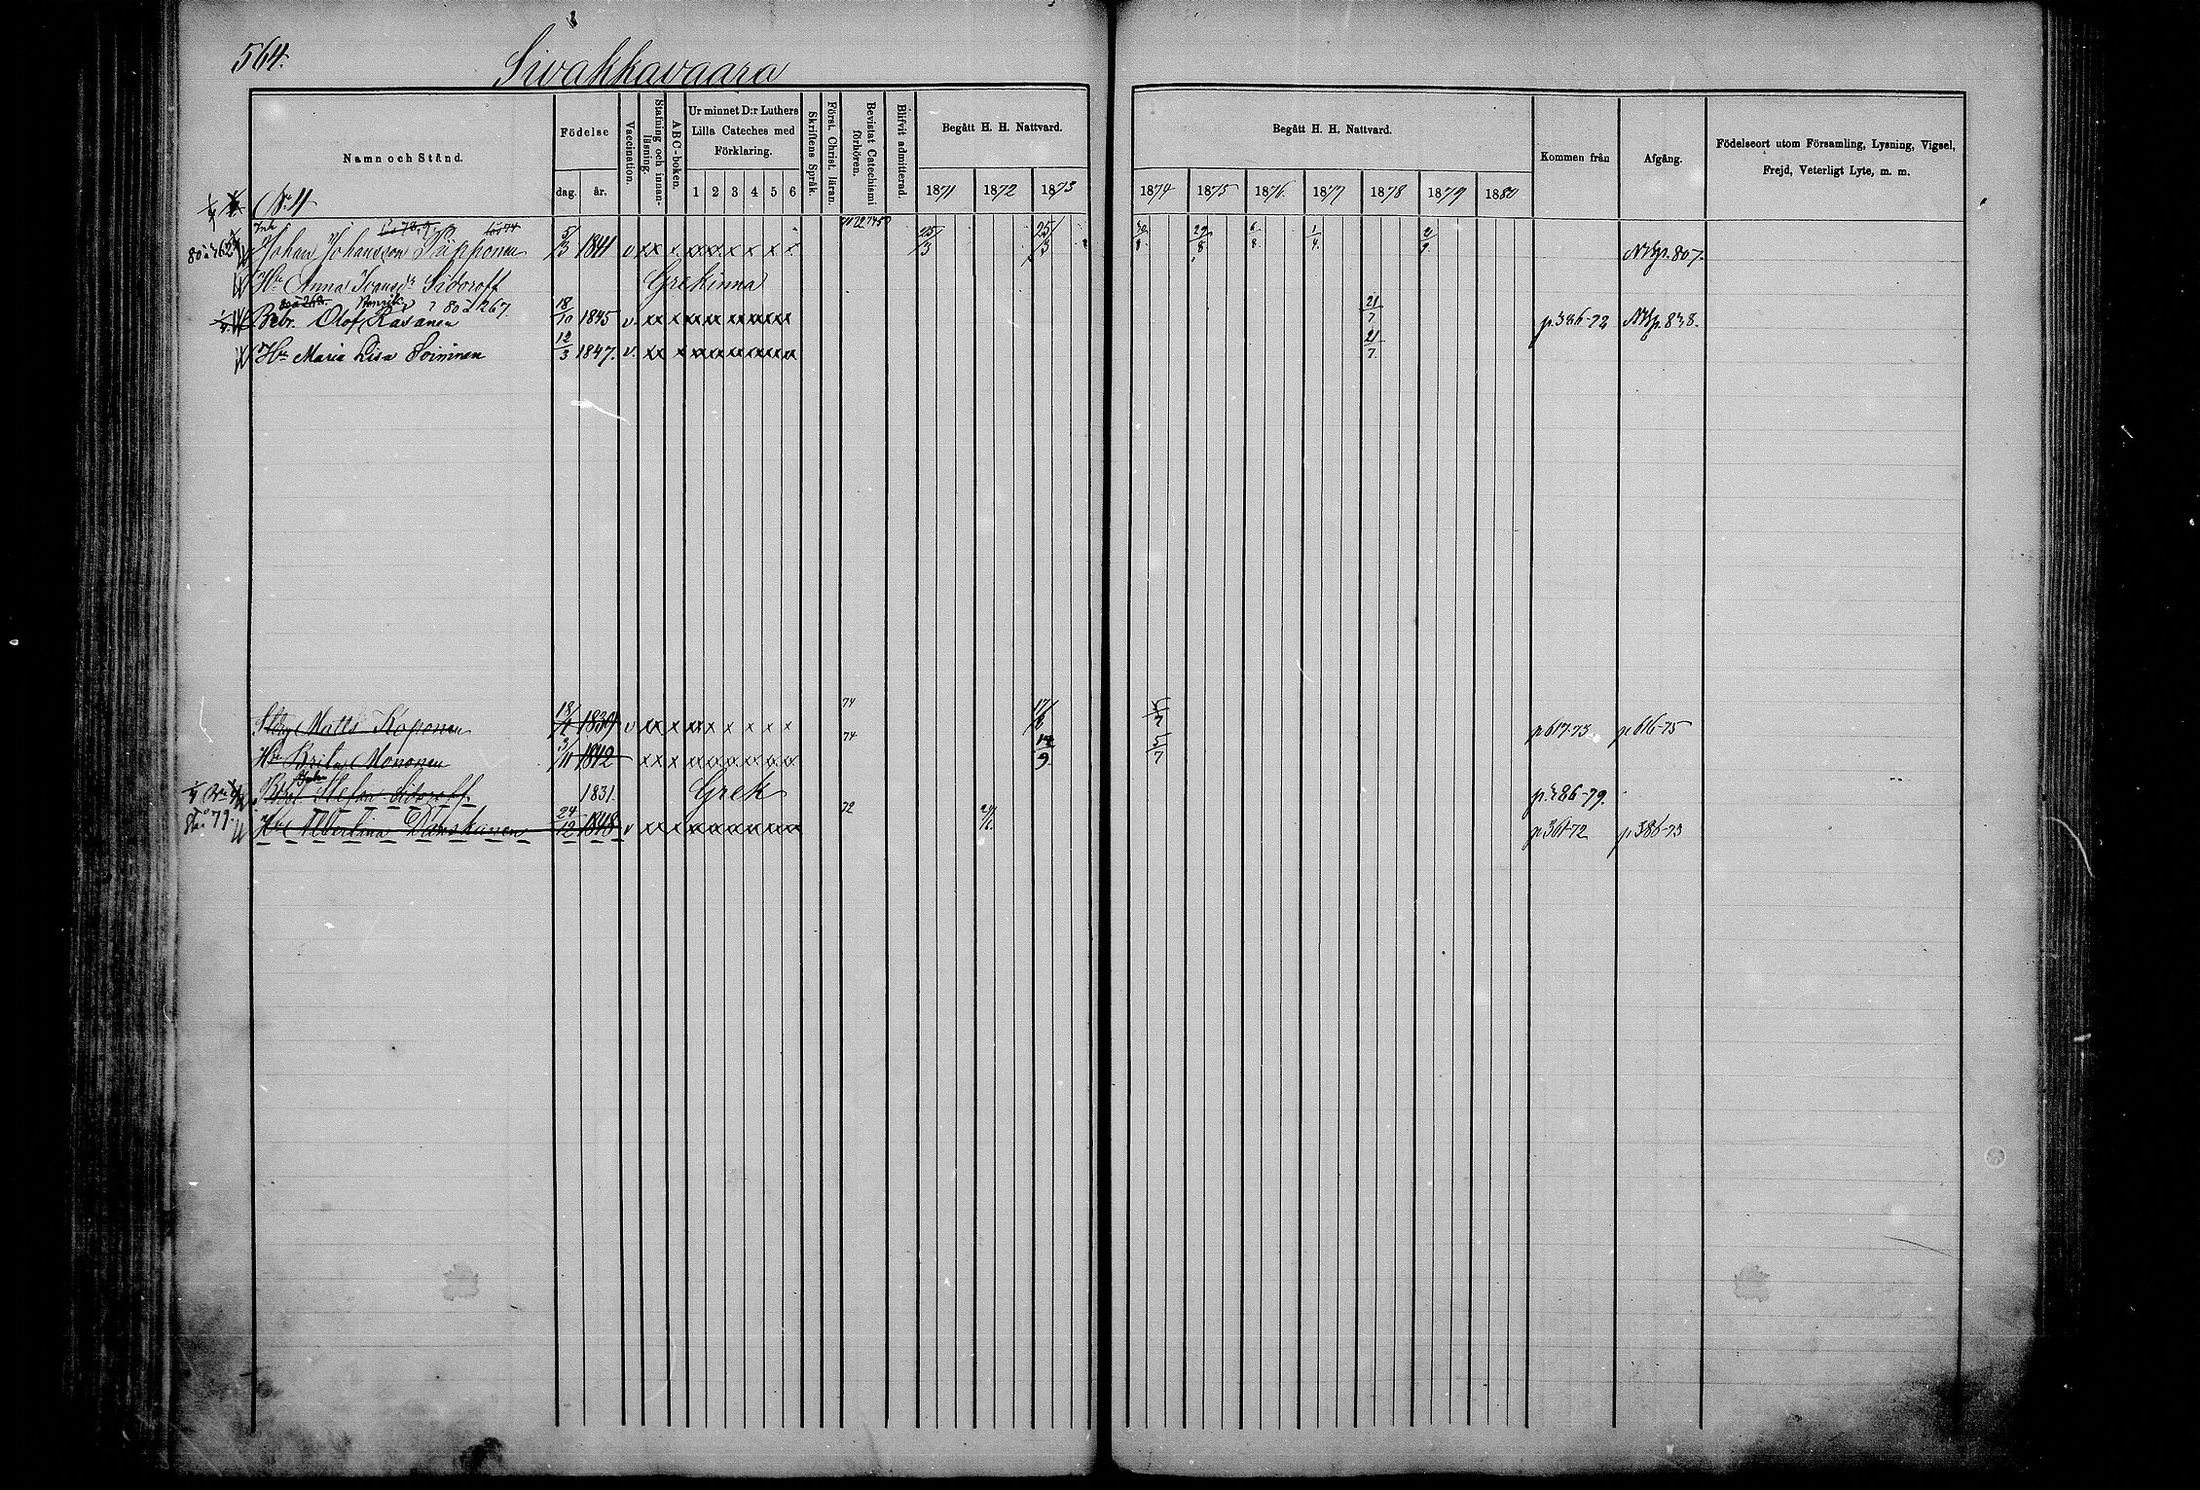 564.
Sivakkavaara
Namn och Stånd.
Födelse
dag.
år.
Vaccination.
Stafning och innan-läsning.
ABC-boken.
Ur minnet D:r Luthers
Lilla Cateches med
Förklaring.
1 2 3 4 5 6
Skriftens Språk.
Först. Christ. läran.
Bevistat Catechismi förhören.
Blifvit admitterad.
Begått H. H. Nattvard.
1871 1872 1873
Begått H. H. Nattvard.
1874 1875 1876 1877 1878 1879 1880
Kommen från
Afgång.
Födelseort utom Församling, Lysning, Vigsel,
Frejd, Veterligt Lyte, m. m.
No. 11
Johan Johansson 5/3 1841 v xx x xx x x x x x 25/3 25/3 29/8 6/8 1/4 NB p. 807.
Hu Anna Sidoroff Grekinna
Henrik 80 à 267.
Olof Räsänen 18/10 1845 v. xx x 21/7 p. 386-72 NB p. 838.
Hu Maria Lisa Soininen 12/3 1847. v. xx x 21/7.
Matts Koponen 1839 v xx x xx x x x x 74 p 617-73 p 616-75
Hu Brita Mononen 3/11 1842 xx x 74 14/9
Stefan Sidoroff 1831. Grek p. 386-79.
Hu Albertina 24/12 1848 v xx x 72 p 361-72 p 386-73